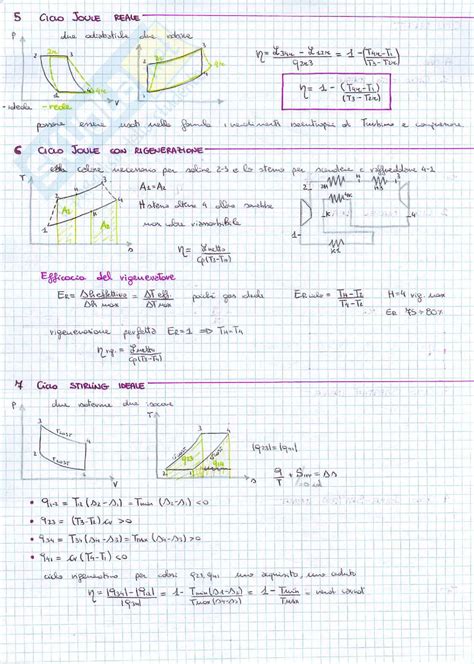 5 CICLO JOULE REALE
P due adiabatiche due isobare
- ideale - reale V
η = (L34r - L12r) / q2r3 = 1 - (T4r-T1) / (T3-T2r)
η = 1 - (T4r-T1) / (T3-T2r)
possono essere usati nella formula i rendimenti isoentropici di Turbina e compressore
6 CICLO JOULE CON RIGENERAZIONE
calore necessario per salire 2-3 e lo stesso per scendere e raffreddare 4-1
T A1 = A2
H stando oltre 4 allora sarebbe
non calore
η = Lnetto / cp(T3-TH)
Efficacia del rigeneratore
ER = Δh effettivo / Δh max = ΔT eff. / ΔT max poiché gas ideale
H=4 rig. max
ER 75÷80%
rigenerazione perfetta ER=1 ⇒ TH=T4
η rig. = Lnetto / cp(T3-T4)
7 CICLO STIRLING IDEALE
P due isoterme due isocore
T=cost V
T S
|q23|=|q41|
q/T + Sirr = Δs
• q1-2 = T12(S2-S1) = Tmin(S2-S1) <0
• q23 = (T3-T2) cv >0
• q34 = T34(S4-S3) = Tmax(S4-S3) >0
• q41 = cv(T4-T1) <0
ciclo rigenerativo per calori q23, q41 uno acquisito, uno ceduto
η = (|q34| - |q12|) / |q34| = 1 - Tmin(S2-S1) / Tmax(S4-S3) = 1 - Tmin / Tmax = rend carnot